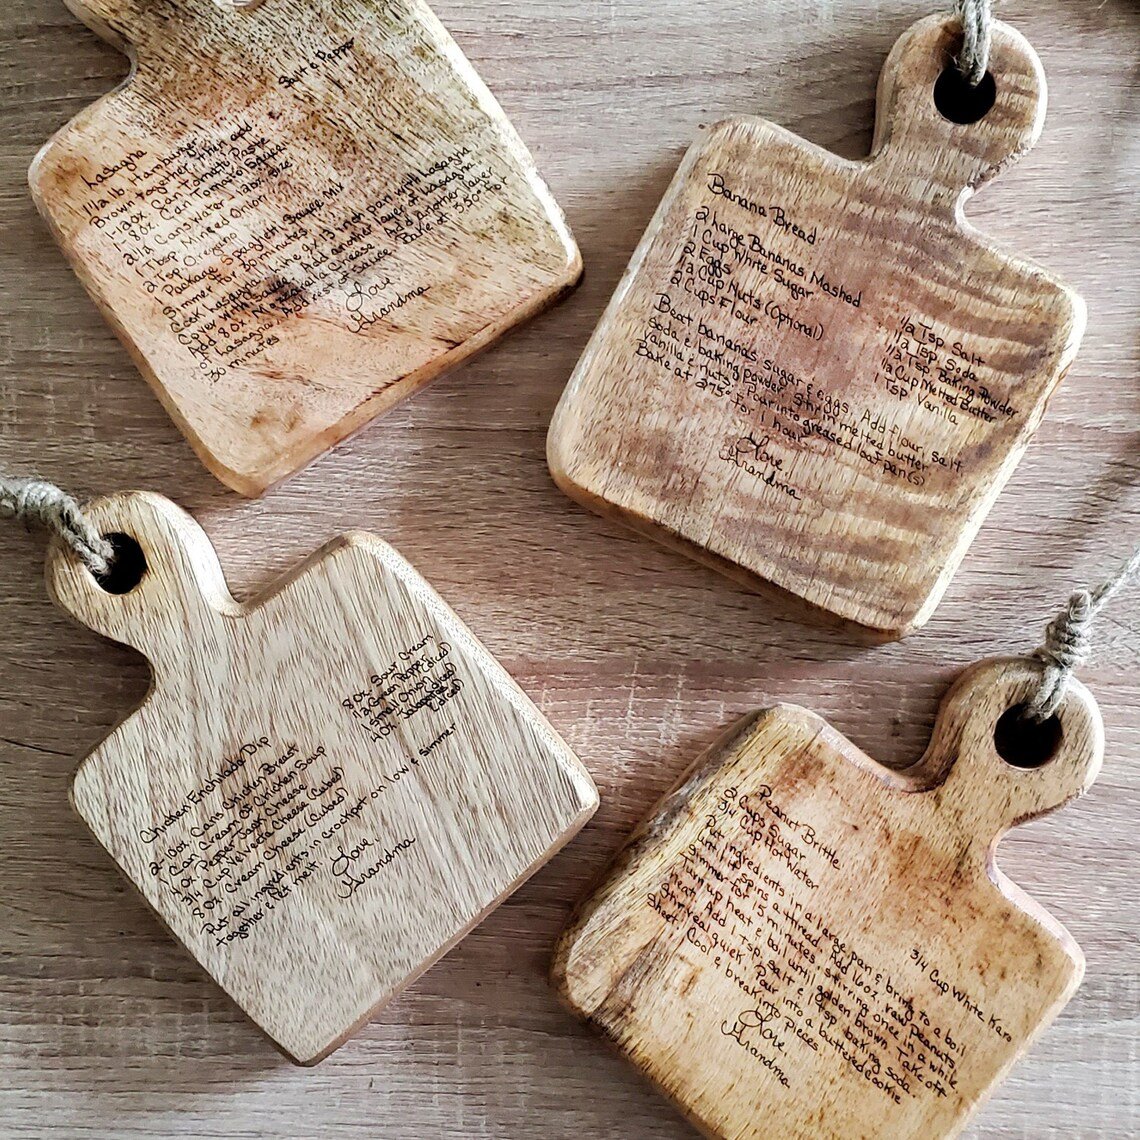 Lasagna
Salt & Pepper
1 1/2 lb. Hamburger
Brown together, then add
1-12oz. Can Tomato Paste
1-8oz. Can Tomato Sauce
2 1/2 Cans Water
1 Tbsp Minced Onion
2 Tsp Oregano
1 Package Spaghetti Sauce Mix
Simmer 30 minutes
Cook Lasagna. Line 9x13 inch pan with Lasagna
Cover with sauce. Add another layer of Lasagna
Add 8oz cheese. Add Another layer
of Lasagna. Add rest of sauce. Bake at 350° for
30 minutes
Love,
Grandma
Banana Bread
2 Large Bananas Mashed
1 Cup White Sugar
2 Eggs
1/2 Cup Nuts (Optional)
2 Cups Flour
1/2 Tsp Salt
1/2 Tsp Soda
1 1/2 Tsp. Baking Powder
1/2 Cup Melted Butter
1 Tsp. Vanilla
Beat bananas, sugar & eggs. Add flour, salt
soda & baking powder. Stir in melted butter
vanilla & nuts. Pour into greased loaf pan(s)
Bake at 275° for 1 hour
Love,
Grandma
Chicken Enchilada Dip
2-10oz Cans Chicken Breast
1 Can Cream of Chicken Soup
3/4 Cup Velveeta Cheese (cubed)
8oz Cream Cheese (cubed)
8oz Sour Cream
1/2 Green Pepper (diced)
1 Small Onion (diced)
4oz Jalapenos (diced)
Put all ingredients in crockpot on low & simmer
together & let melt
Love,
Grandma
Peanut Brittle
2 Cups Sugar
3/4 Cup Hot Water
3/4 Cup White Karo
Put ingredients in a large pan & bring to a boil
until it spins a thread. Add 16oz. raw peanuts.
Simmer for 15 minutes, stirring once in a while.
Turn up heat & boil until golden brown. Take off
heat. Add 1 Tsp. salt & 1 Tsp. baking soda.
Stir real quick. Pour into a buttered Cookie
Sheet. Cool & break into pieces
Love,
Grandma